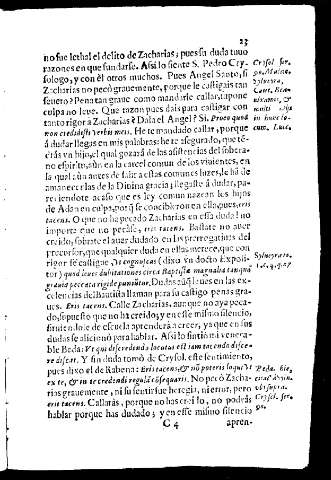 23
no fue lethal el delito de Zacharias; pues su duda tuuo
razones en que fundarse. Assi lo siente S. Pedro Cry-
sologo, y con èl otros muchos. Pues Angel Santo, si
Zacharias no pecò grauemente, porque le castigais tan
seuero? Pena tan graue como mandarle callar, supone
culpa no leue. Que razon pues dais para castigar con
tanto rigor à Zacharias? Dala el Angel? Si. Pro eo quòd
non credidisti verbis meis. He te mandado callar, porque
à dudar llegas en mis palabras: he te asegurado, que tē-
eràs vn hijo, el qual gozarà de las asistencias del sobera-
no espiritu, aun en la carcel comun de los viuientes, en
la qual aun antes de salir a estas comunes luzes, le hà de
amanecer la de la Diuina gracia; llegaste à dudar, pa-
reciendote acaso que es ley comun nazcan los hijos
de Adan en culpa, porq̃ se concibieron en ella, pues, eris
tacens. O que no ha pecado Zacharias en essa duda! no
importa que no pecàse, eris tacens. Bastale no auer
creido, sobrale el auer dudado en las prerrogatiuas del
precursor, que qualquier duda en ellas merece, que con
rigor se castigue, (dixo vn docto Exposi-
tor) quod leues dubitationes circa Baptistæ magnalia tanquā
grauia peccata rigidè puniũtur. Dudas aũq̃ leues en las ex-
celencias del Bautista llaman para su castigo penas gra-
ues. Eris tacens. Calle Zacharias, aunque no aya peca-
do, supuesto que no ha creido, y en esse mismo silencio,
siruiendole de escuela aprenderà a creer, ya que en sus
dudas se aliciono para hablar. Assi lo sintiò mi venera-
ble Beda: Vt qui discredendo locutus est iam tacendo disce-
re disceret. Y sin duda tomò de Crysol. este sentimiento,
pues dixo el de Rabena: Eris tacens, & nō poteris loqui vt
ex te, & in te credendi regulā cõsequaris. No pecò Zacha-
rias grauemente, ni su sentir fue heregia, ni error, pero
eris tacens. Callaràs, porque no has creido, no podràs
hablar porque has dudado; y en esse mismo silencio
C 4
apren-
Crysol. ser.
Sylueira,
Sylueyra to.
Peda. hic,
Vbi supra.
Crysol. ser.